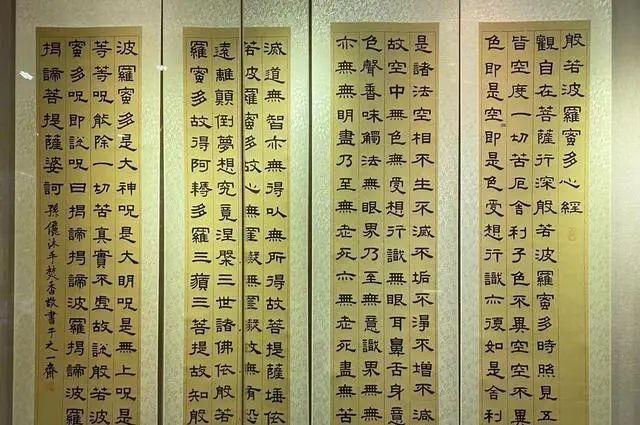 般若波羅蜜多心經
觀自在菩薩行深般若波羅蜜多時照見五
皆空度一切苦厄舍利子色不異空空不異
色即是空即是色受想行識亦復如是舍利
是諸法空相不生不滅不垢不淨不增不減
故空中無色無受想行識無眼耳鼻舌身意
色聲香味觸法無眼界乃至無意識界無無
亦無無明盡乃至無老死亦無老死盡無苦
滅道無智亦無得以無所得故菩提薩埵依
若波羅蜜多故心無罣礙無罣礙故無有恐
遠離顛倒夢想究竟涅槃三世諸佛依般若
羅蜜多故得阿耨多羅三藐三菩提故知般
波羅蜜多是大神呪是大明呪是無上呪是
等等呪能除一切苦真實不虛故說般若波
蜜多呪即說呪曰揭諦揭諦波羅揭諦波羅
揭諦菩提薩婆訶 孫儷沐手焚香敬書于之一齋